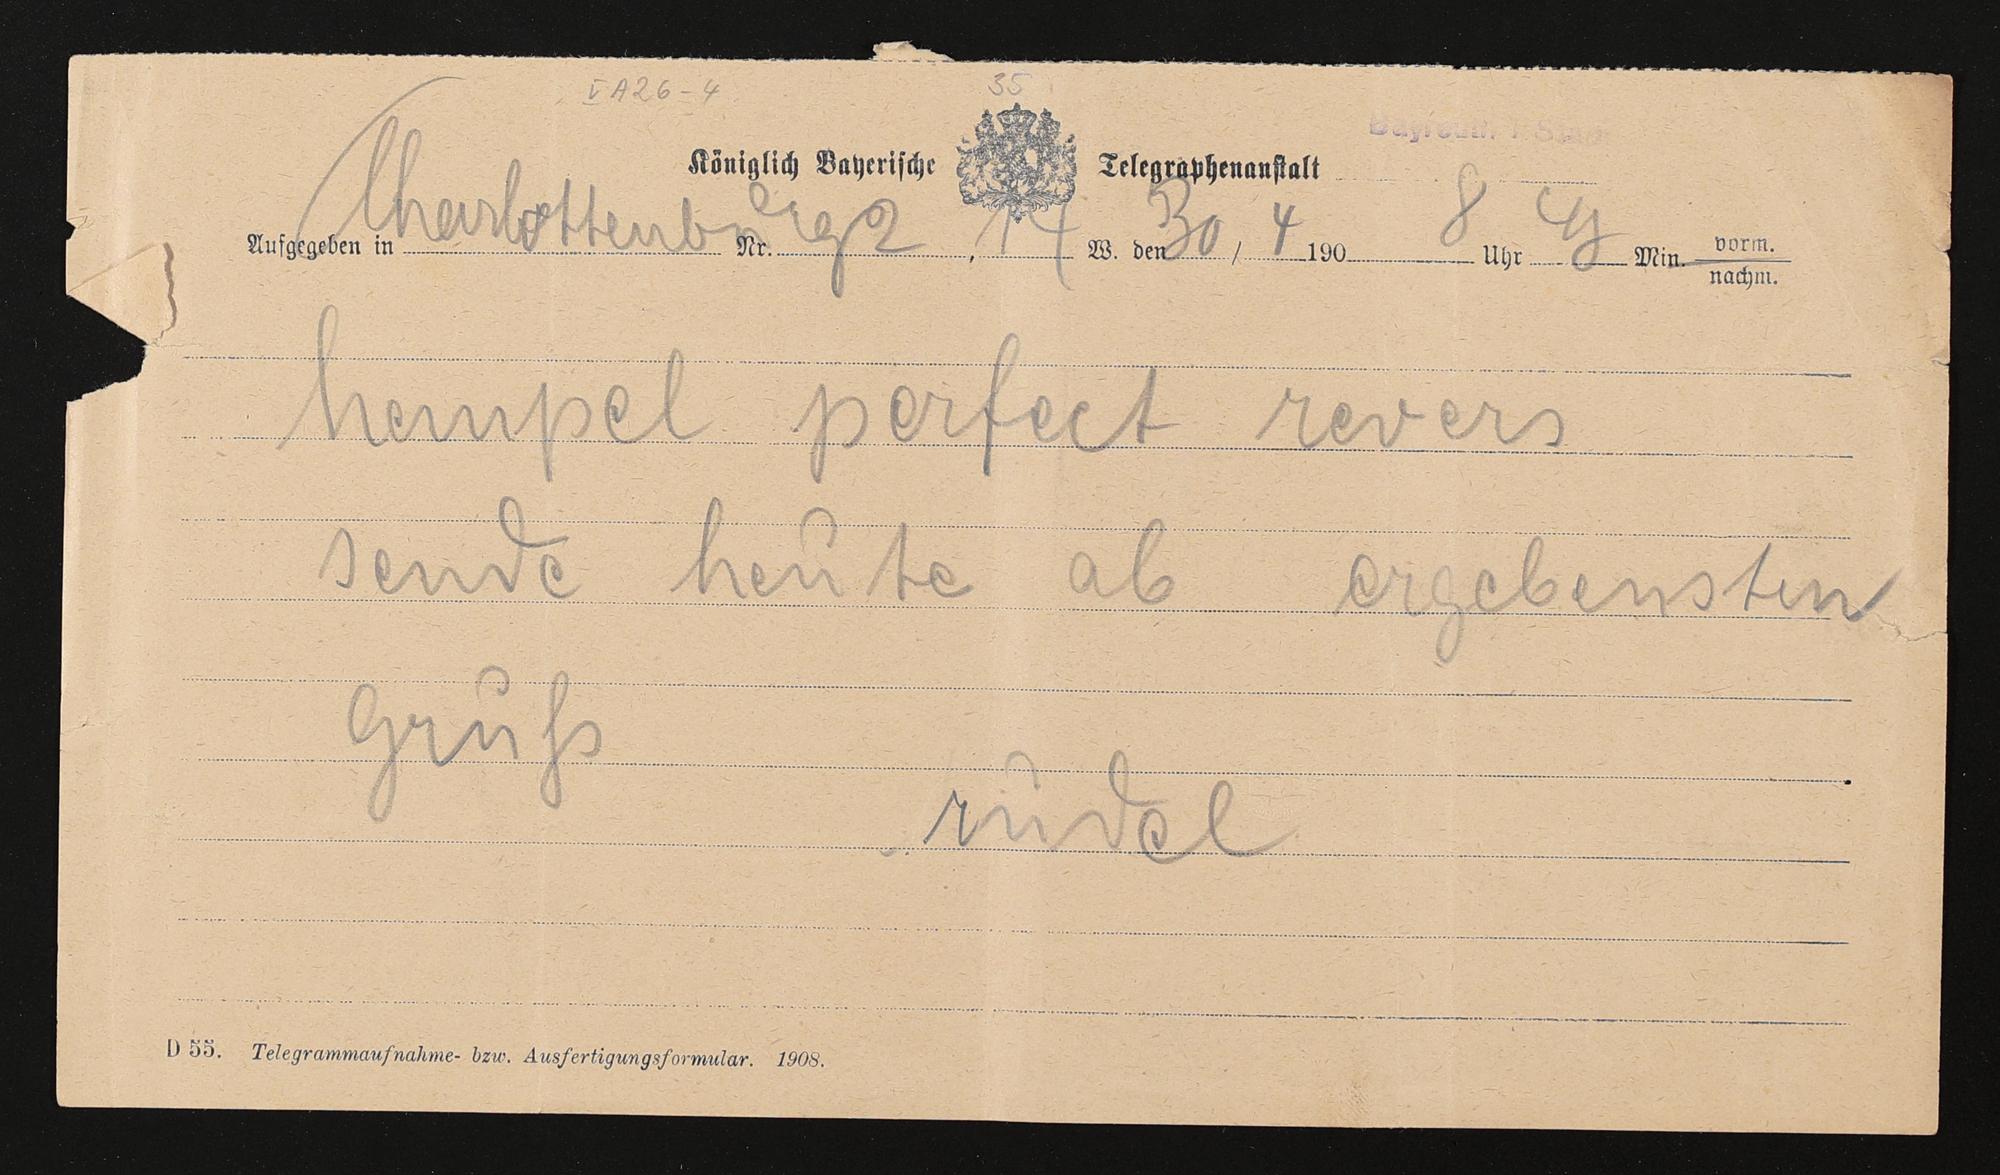 V A26-4 35
Bayreuth 1 Stadt
Königlich Bayerische Telegraphenanstalt
Aufgegeben in Charlottenburg 2 Nr. , 14 W. den 30 / 4 190 8 Uhr Min. vorm. nachm.
hempel perfect revers
sende heute ab ergebensten
gruss
rudel
D 55. Telegrammaufnahme- bzw. Ausfertigungsformular. 1908.